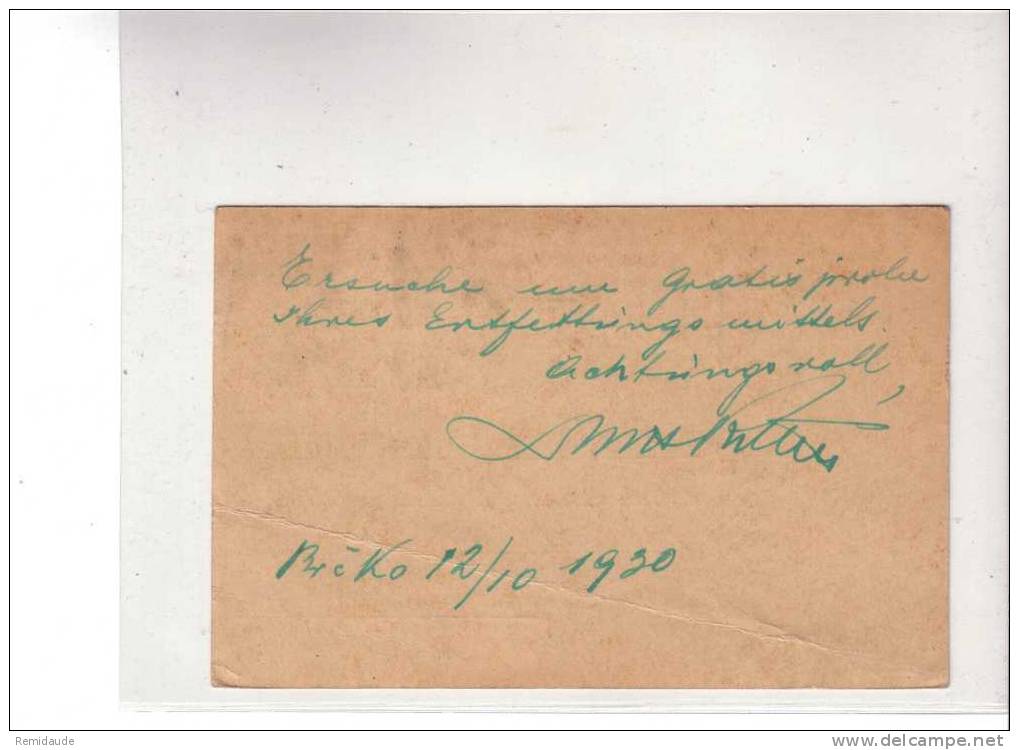 Ersuche um Gratisprobe
Ihres Entfettungsmittels.
Achtungsvoll,
Brčko 12/10 1930
Remidaude
www.delcampe.net